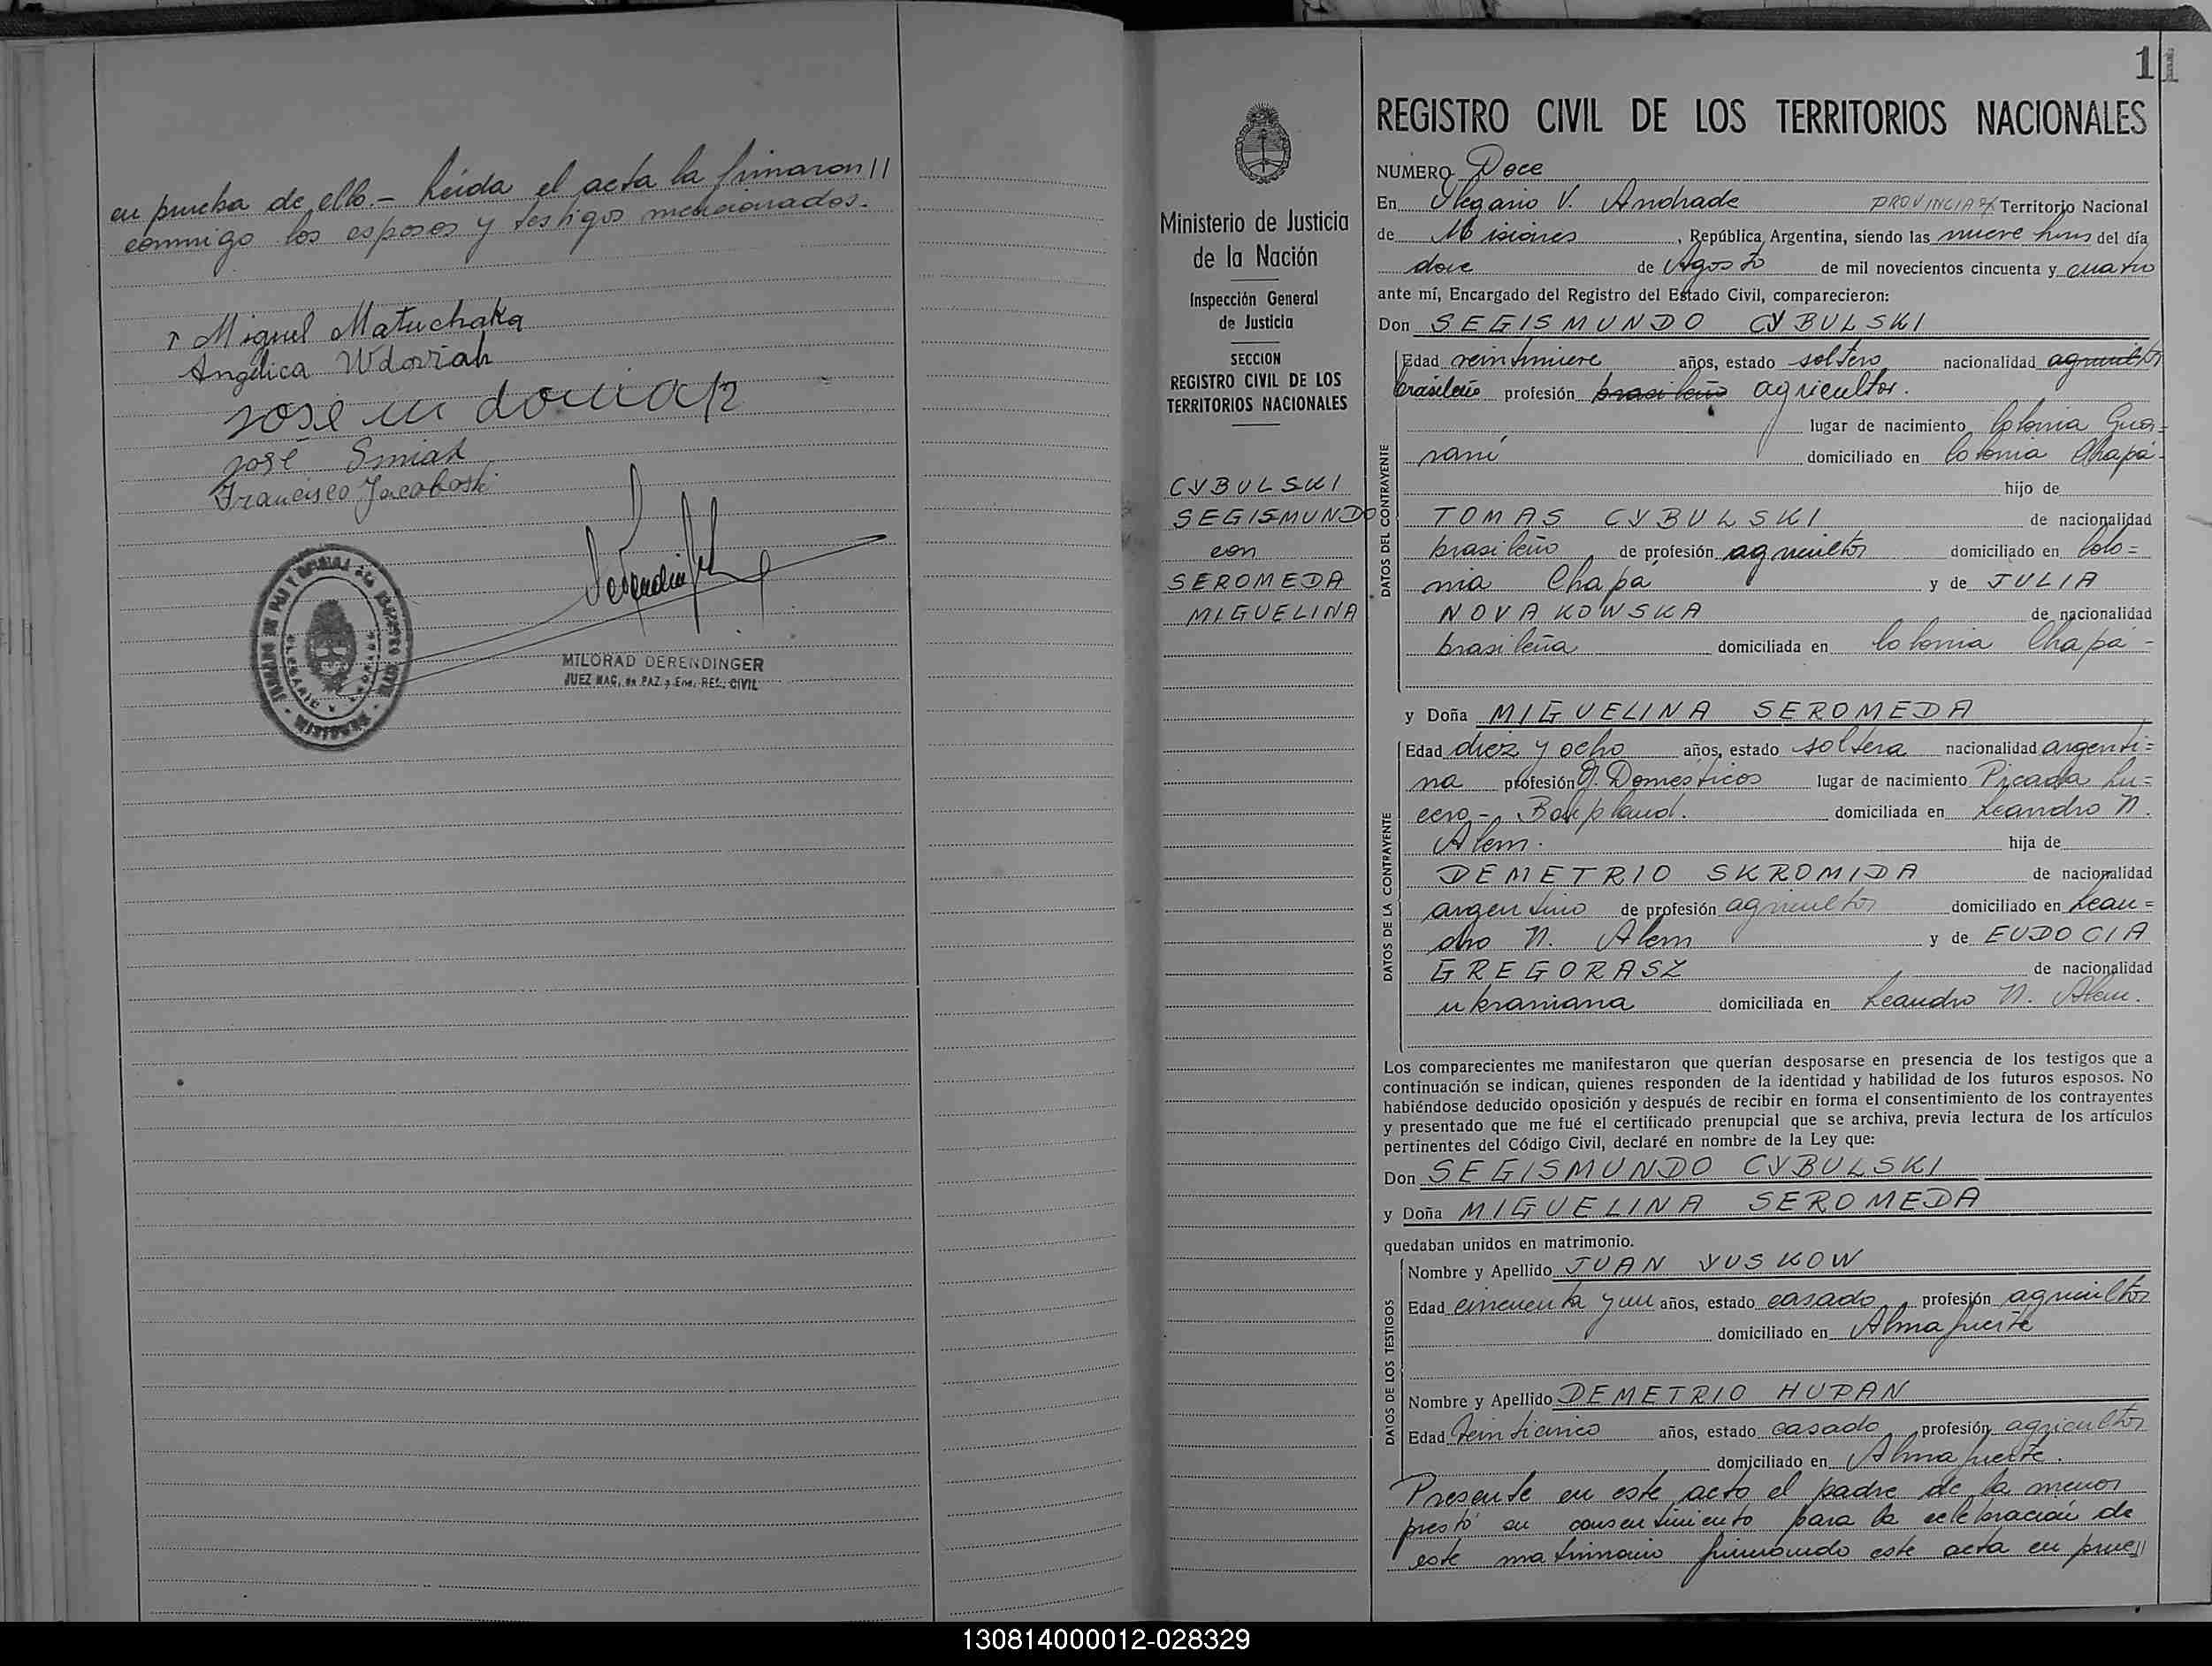 en prueba de ello.- Leida el acta la firmaron //
conmigo los esposos y testigos mencionados.
Miguel Matuchaka
Angelica Wdoviak
José
José Smiak
Francisco Jacoboski
MILORAD DERENDINGER
JUEZ NAC. de PAZ y Enc. REG. CIVIL
11
Ministerio de Justicia
de la Nación
Inspección General
de Justicia
SECCION
REGISTRO CIVIL DE LOS
TERRITORIOS NACIONALES
CYBULSKI
SEGISMUNDO
con
SEROMEDA
MIGUELINA
REGISTRO CIVIL DE LOS TERRITORIOS NACIONALES
NUMERO Doce
En Olegario V. Andrade PROVINCIA Territorio Nacional
de Misiones, República Argentina, siendo las nueve horas del día
doce de Agosto de mil novecientos cincuenta y cuatro
ante mí, Encargado del Registro del Estado Civil, comparecieron:
Don SEGISMUNDO CYBULSKI
DATOS DEL CONTRAYENTE
Edad veintinueve años, estado soltero nacionalidad agricultor
brasileño profesión brasileño agricultor.
lugar de nacimiento Colonia Gua=
raní domiciliado en Colonia Chapá-
hijo de
TOMAS CYBULSKI de nacionalidad
brasileño de profesión agricultor domiciliado en Colo=
nia Chapá y de JULIA
NOVAKOWSKA de nacionalidad
brasileña domiciliada en Colonia Chapá-
y Doña MIGUELINA SEROMEDA
DATOS DE LA CONTRAYENTE
Edad diez y ocho años, estado soltera nacionalidad argenti=
na profesión Q. Domésticos lugar de nacimiento Picada Lu=
cero - Bonpland. domiciliada en Leandro N.
Alem. hija de
DEMETRIO SKROMIDA de nacionalidad
argentino de profesión agricultor domiciliado en Lean=
dro N. Alem y de EUDOCIA
GREGORASZ de nacionalidad
ukraniana domiciliada en Leandro N. Alem.
Los comparecientes me manifestaron que querían desposarse en presencia de los testigos que a
continuación se indican, quienes responden de la identidad y habilidad de los futuros esposos. No
habiéndose deducido oposición y después de recibir en forma el consentimiento de los contrayentes
y presentado que me fué el certificado prenupcial que se archiva, previa lectura de los artículos
pertinentes del Código Civil, declaré en nombre de la Ley que:
Don SEGISMUNDO CYBULSKI
y Doña MIGUELINA SEROMEDA
quedaban unidos en matrimonio.
DATOS DE LOS TESTIGOS
Nombre y Apellido JUAN YUSKOW
Edad cincuenta y un años, estado casado profesión agricultor
domiciliado en Almafuerte
Nombre y Apellido DEMETRIO HUPAN
Edad veinticinco años, estado casado profesión agricultor
domiciliado en Almafuerte.
Presente en este acto el padre de la menor
prestó su consentimiento para la celebración de
este matrimonio firmando este acta en prue//
130814000012-028329